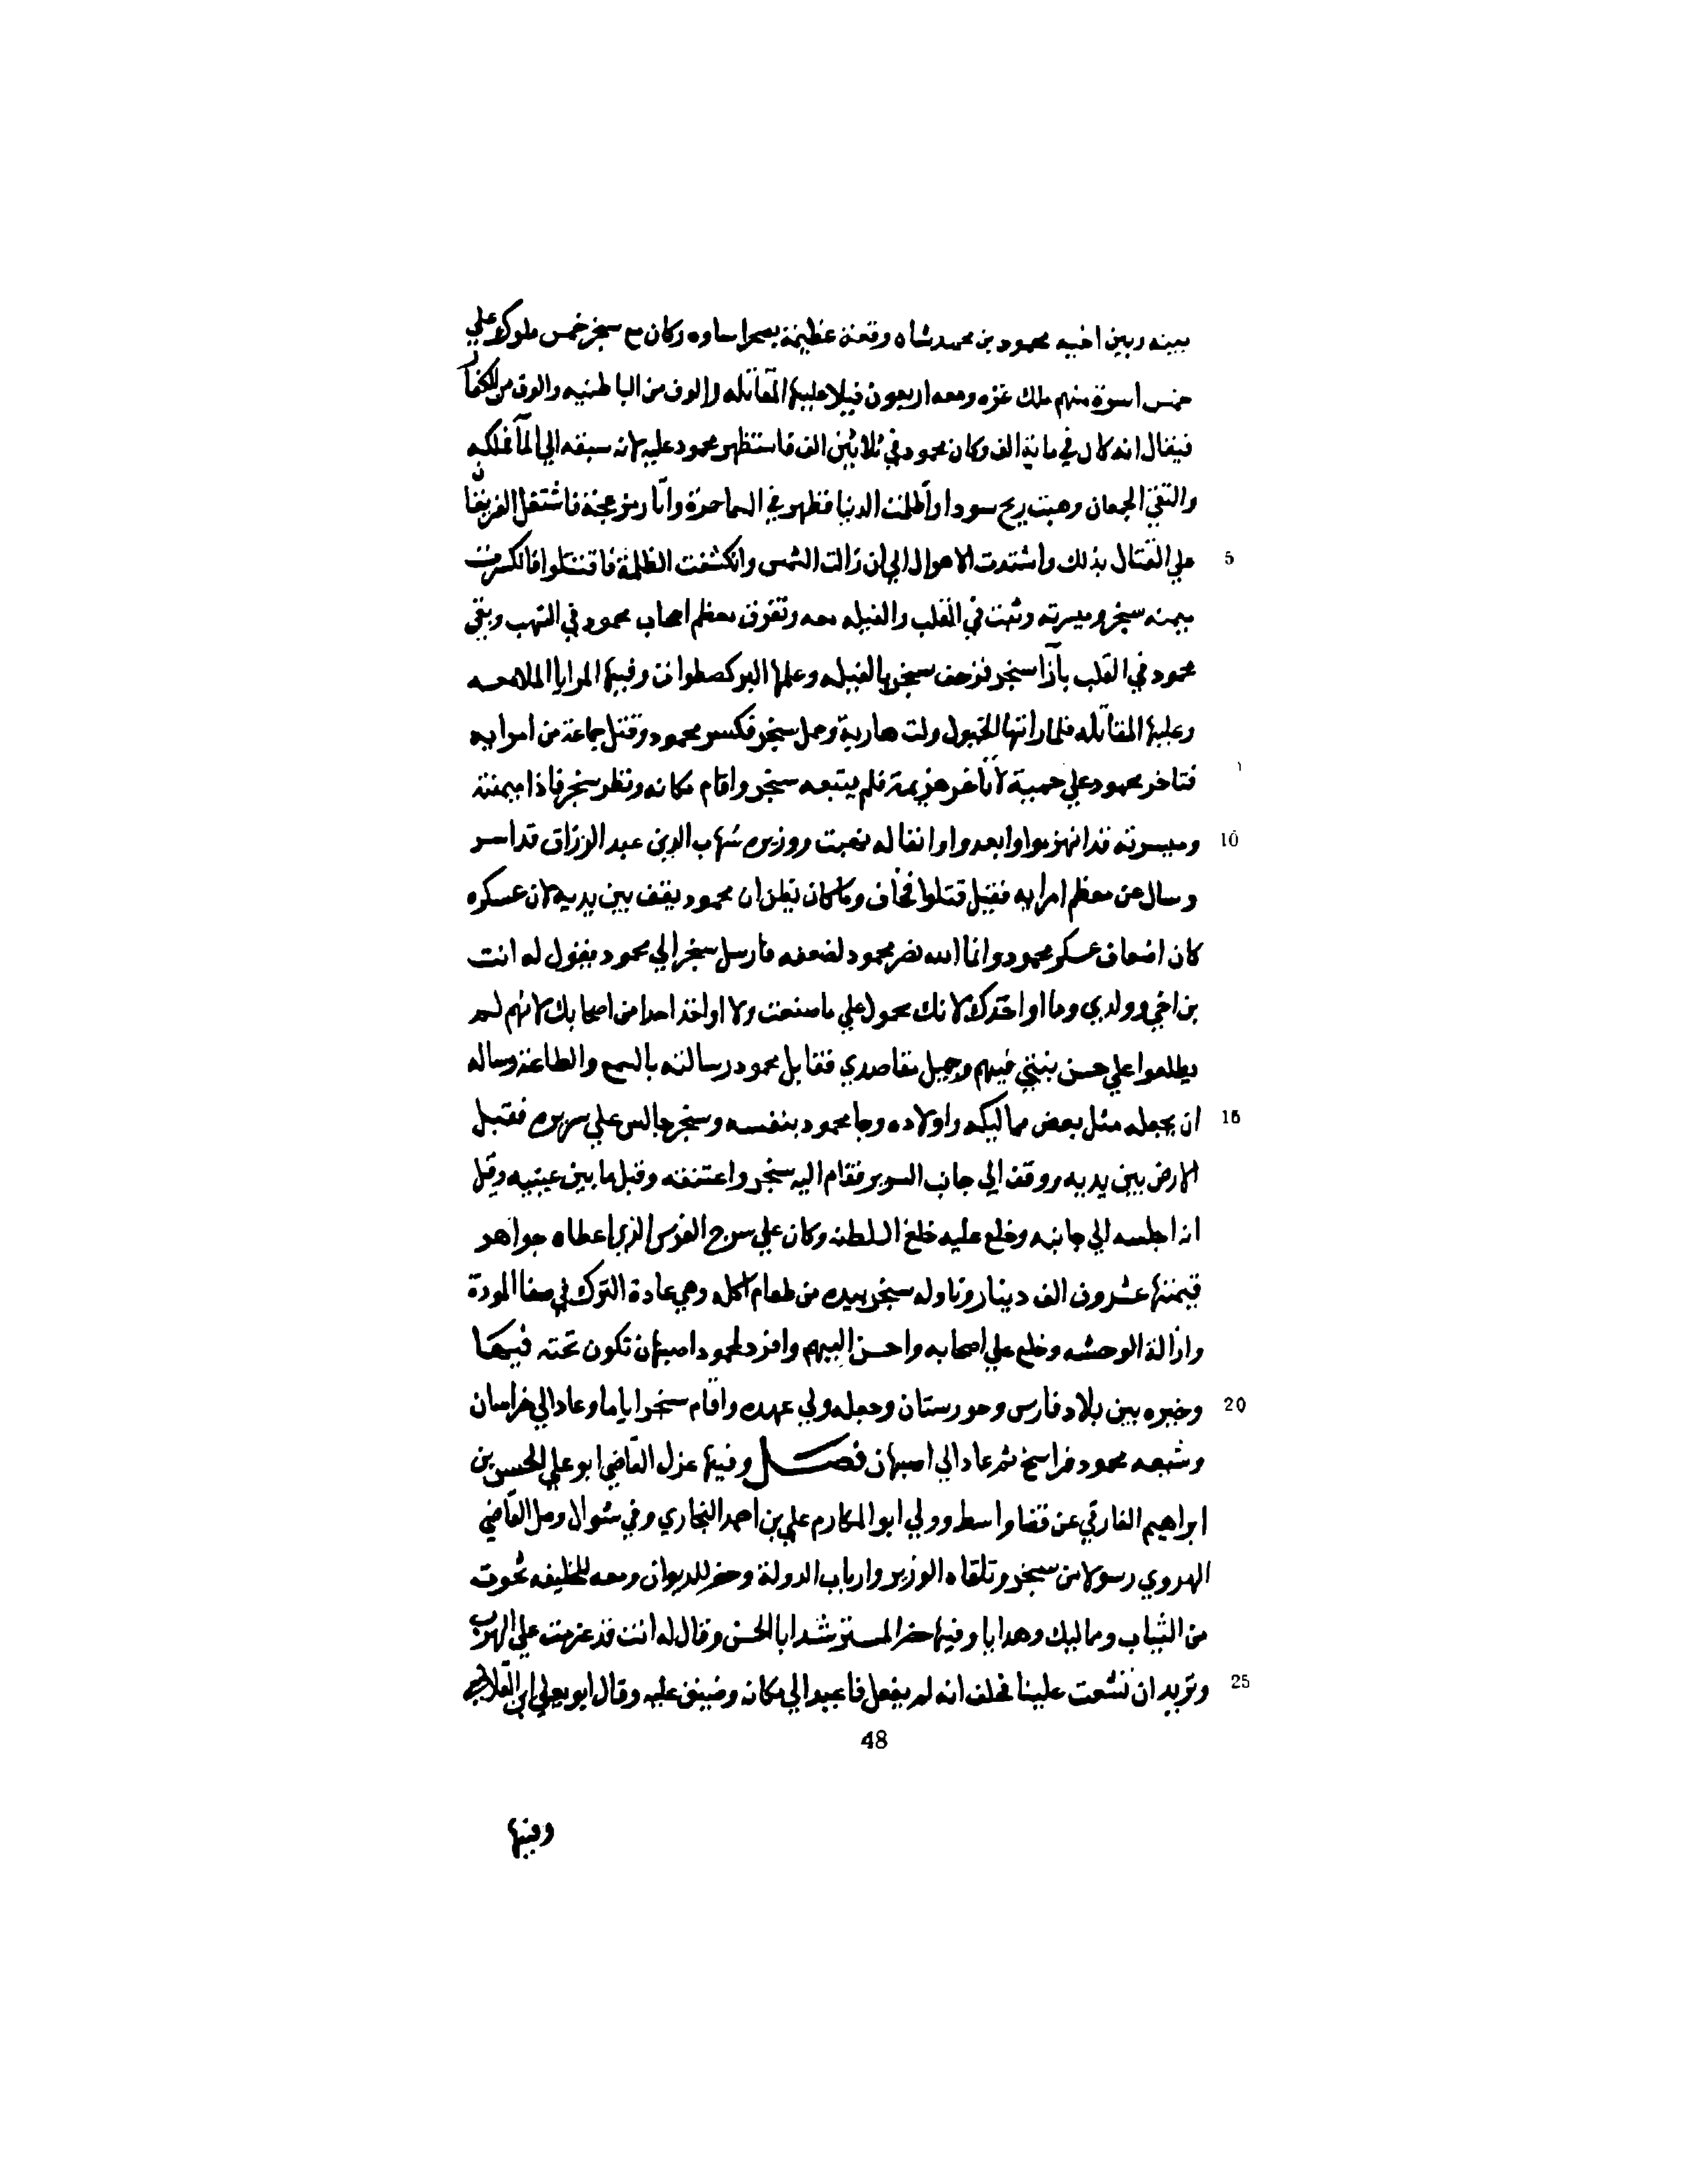 بينه وبين اخيه محمود بن محمد شاه وقعة عظيمة بصحرا ساوه وكان مع سنجر خمس ملوك علي
خمس اسرة منهم ملك غزه ومعه اربعون فيلا عليها المقاتله والوف من الباطنيه والوف من الكفار
فيقال انه كان في ماية الف وكان محمود في ثلاثين الف فاستظهر محمود عليه لانه سبقه الي الماء فملكه
والتقي الجمعان وهبت ريح سودا واظلمت الدنيا فظهر في السما حمرة واثار مزعجة فاشتغل الفريقان
علي القتال بذلك واشتدت الاهوال الي ان زالت الشمس وانكشفت الظلمة فاقتتلوا فانكسرت
ميمنه سنجر وميسرته وثبت في القلب والفيله معه وتفرق معظم اصحاب محمود في النهب وبقي
محمود في القلب بآزا سنجر فزحف سنجر بالفيله وعليها البركصطوانات وفيها المرايا الملامعه
وعليها المقاتله فلما راتها الخيول ولت هاربة وحمل سنجر فكسر محمود وقتل جماعة من امرايه
فتاخر محمود علي حمية لا تاخر هزيمة فلم يتبعه سنجر واقام مكانه ونظر سنجر فاذا ميمنته
وميسرته قد انهزموا وابعدوا واثقاله نهبت ووزيره شهاب الدين عبد الرزاق قد اسر
وسال عن معظم امرايه فقيل قتلوا فخاف وما كان يظن ان محمود يقف بين يديه لان عسكره
كان اضعاف عسكر محمود وانما الله نصر محمود لضعفه فارسل سنجر الي محمود يقول له انت
بن اخي وولدي وما اواخذك لانك محمول علي ما صنعت ولا اواخذ احدا من اصحابك لانهم لم
يطلعوا علي حسن نيتي فيهم وجميل مقاصدي فقابل محمود رسالته بالسمع والطاعة وساله
ان يجعله مثل بعض مماليكه واولاده وجا محمود بنفسه وسنجر جالس علي سريره فقبل
الارض بين يديه ووقف الي جانب السرير فقام اليه سنجر واعتنقه وقبل ما بين عينيه وقيل
انه اجلسه الي جانبه وخلع عليه خلع السلطنه وكان علي سرج الفرس الذي اعطاه جواهر
قيمتها عشرون الف دينار وناوله سنجر بيده من طعام اكله وهي عادة الترك في صفا المودة
وازالة الوحشه وخلع علي اصحابه واحسن اليهم وافرد لمحمود اصبهان تكون تحته فيها
وخيره بين بلاد فارس وخورستان وجعله ولي عهده واقام سنجر اياما وعاد الي خراسان
وشيعه محمود فراسخ ثم عاد الي اصبهان فصل وفيها عزل القاضي ابو علي الحسن بن
ابراهيم الفارقي عن قضا واسط وولي ابو المكارم علي بن احمد البخاري وفي شوال وصل القاضي
الهروي رسولا من سنجر وتلقاه الوزير وارباب الدولة وحضر للديوان ومعه للخليفه تخوت
من الثياب ومماليك وهدايا وفيها حضر المسترشد ابا الحسن وقال له انت قد عزمت علي الهروب
وتريد ان تشعث علينا فحلف انه لم يفعل فاعيد الي مكانه وضيق عليه وقال ابو يعلي ابن القلانسي
48
وفيها
5
10
15
20
25